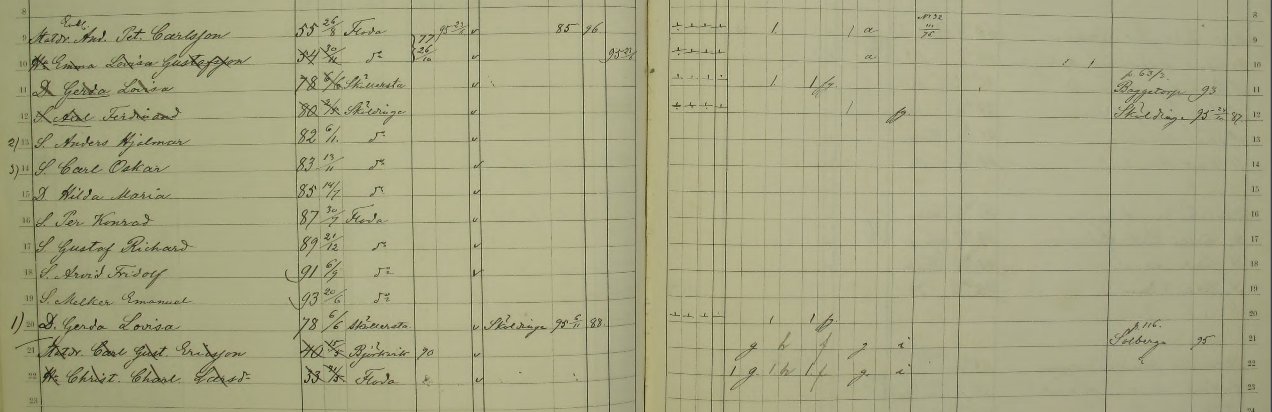 8 8
9 Statdr. And. Pet. Carlsson 55 26/8 Floda 77 v 85 96 1 1 a No 32 9
10 H. Emma Lovisa Gustafsson 54 do 26/10 v a. 1 1 10
11 D. Gerda Lovisa 78 6/6 Sköllersta v 1 1 p. 63/3. Baggetorp 93 11
12 S. Axel Ferdinand 80 Sköldinge v 1 Sköldinge 95 12
2) 13 S. Anders Hjalmar 82 6/11 do v 13
3) 14 S. Carl Oskar 83 13/11 do v 14
15 D. Hilda Maria 85 14/7 do v 15
16 S. Per Konrad 87 30/7 Floda v 16
17 S. Gustaf Richard 89 21/12 do v 17
18 S. Arvid Fridolf 91 6/9 do v 18
19 S. Melker Emanuel 93 20/6 do 19
1) 20 D. Gerda Lovisa 78 6/6 Sköllersta v Sköldinge 95 6/11 88 1 1 p. 116. 20
21 Statdr. Carl Gust. Ericsson 40 Björkvik 90 v g h f g i Solberga 95 21
22 H. Christ. Charl. Larsd. 33 Floda v 1 g. 1 h 1 f g. i 22
23 23
24